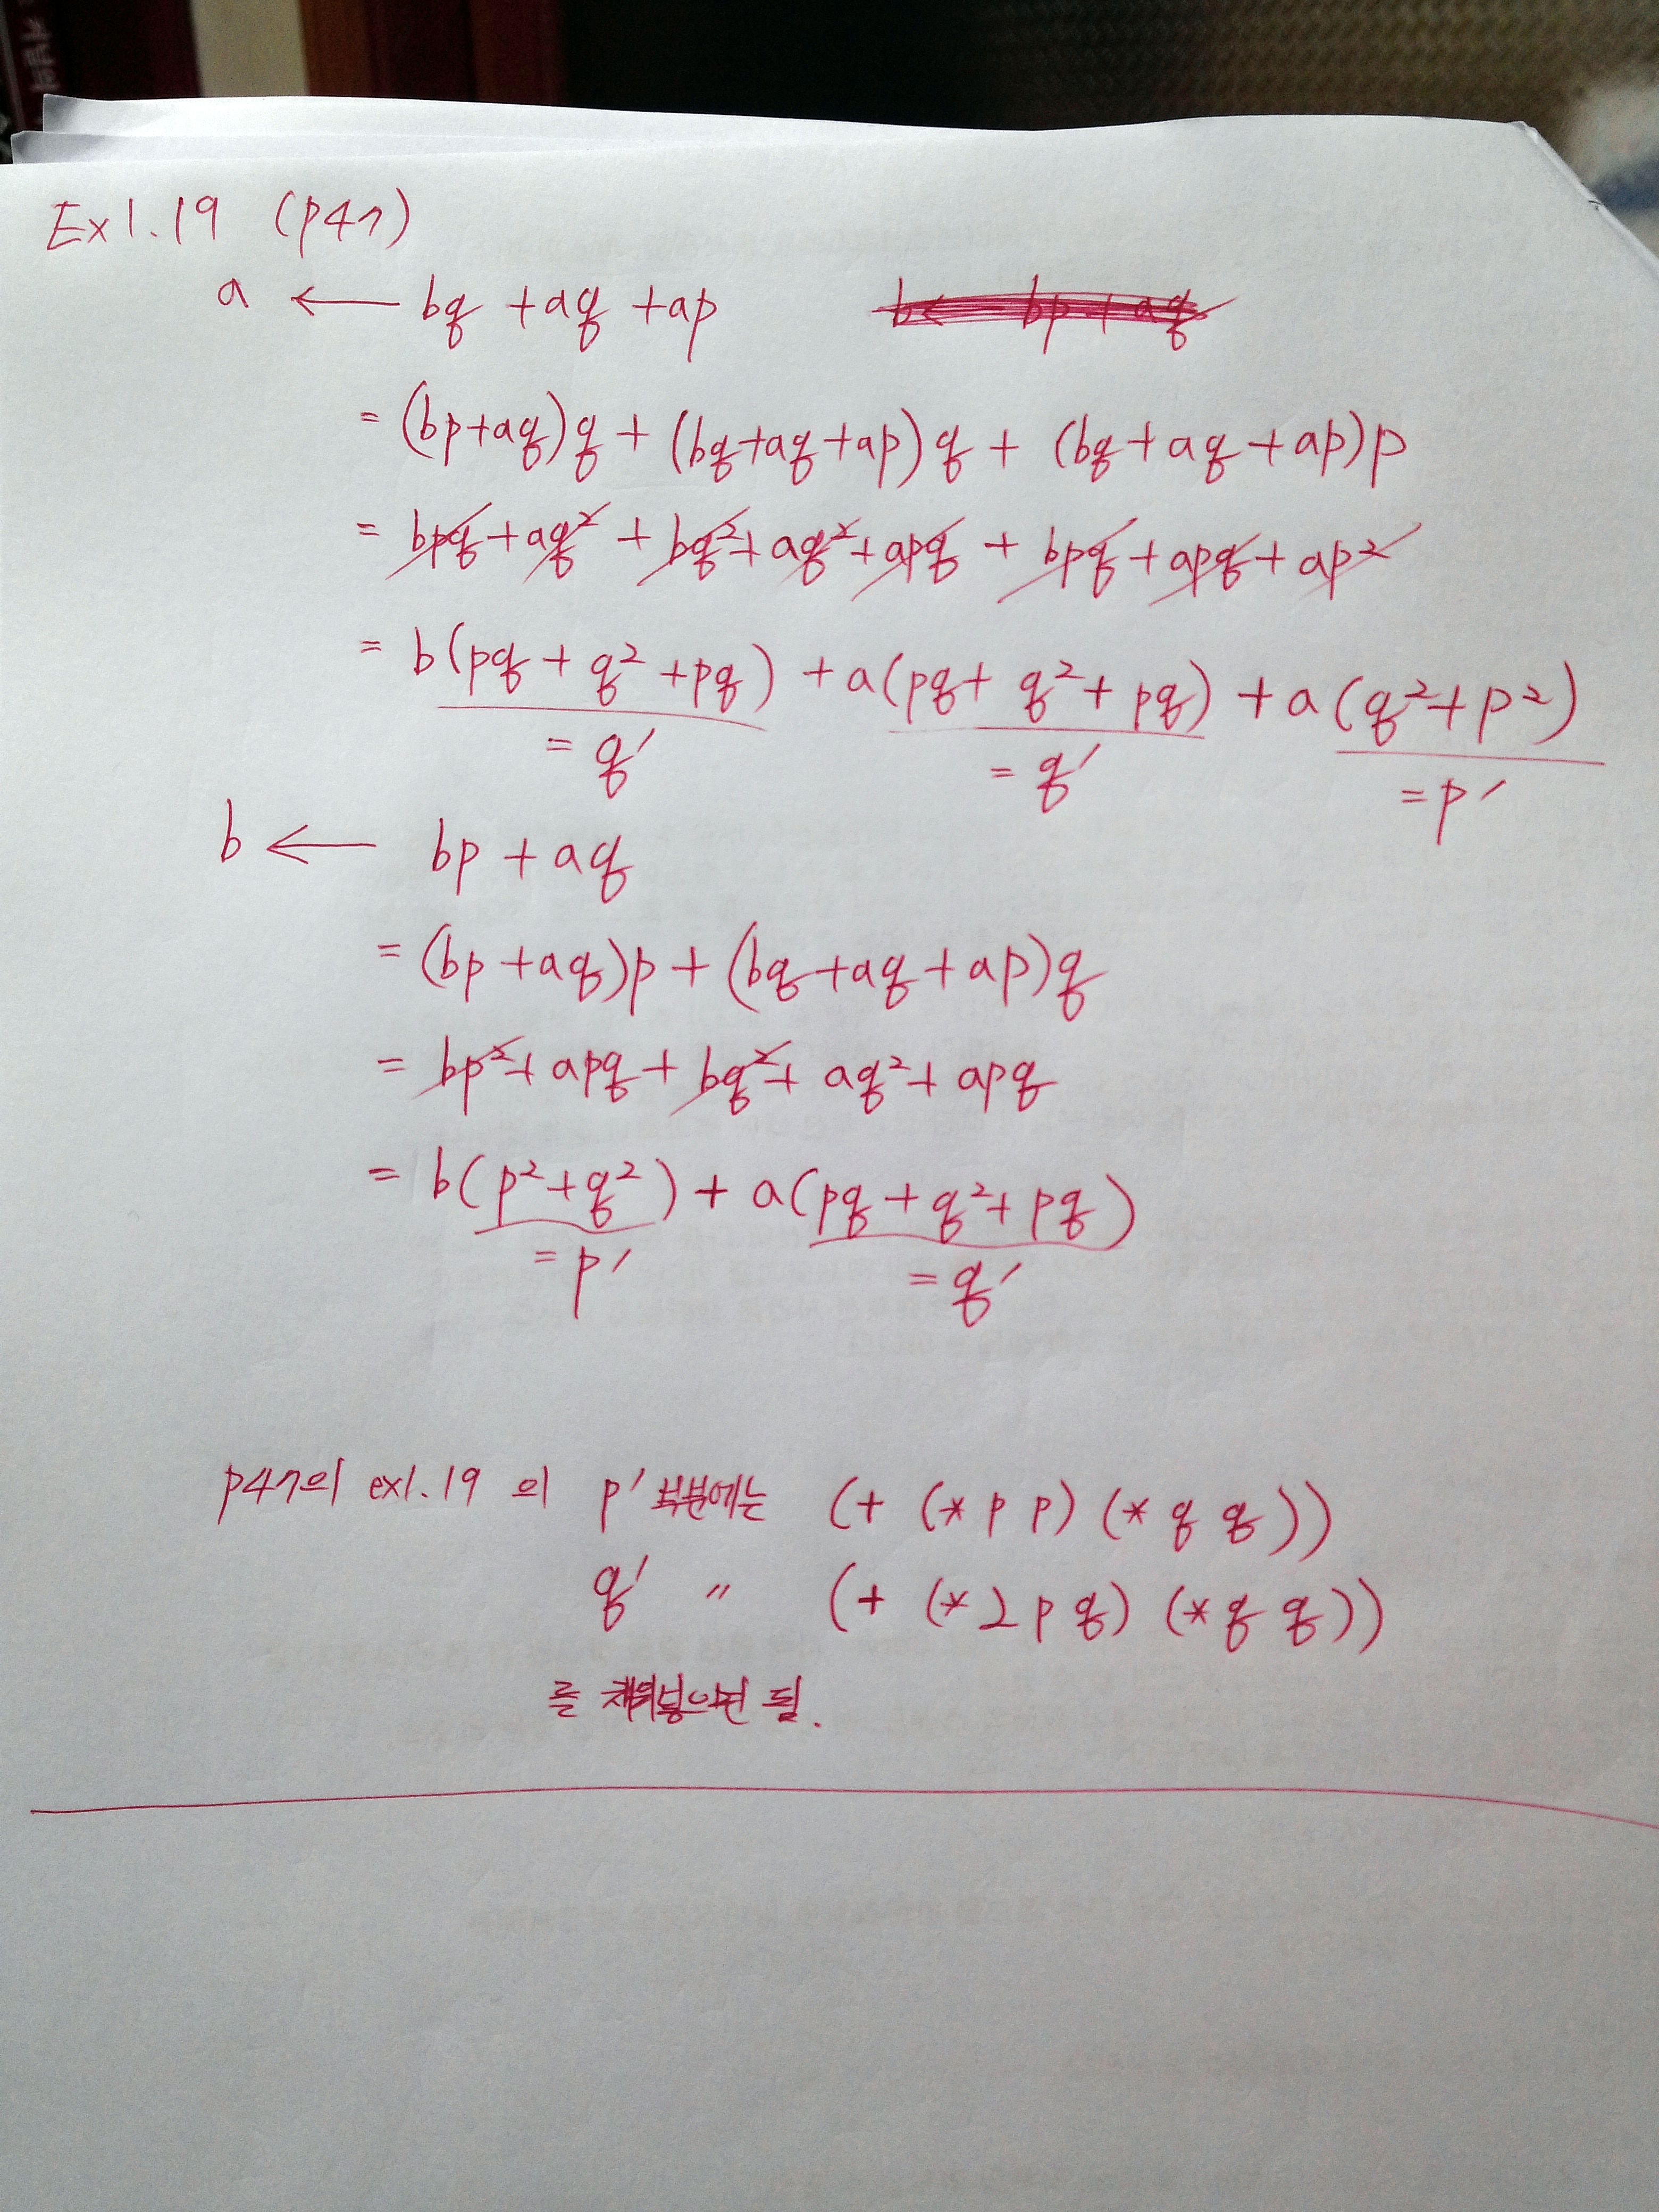 Ex1.19 (p47)
a ← bq + aq + ap b ← bp + aq
= (bp+aq)q + (bq+aq+ap)q + (bq+aq+ap)p
= bpq + aq² + bq² + aq² + apq + bpq + apq + ap²
= b(pq + q² + pq) + a(pq + q² + pq) + a(q² + p²)
= q′ = q′ = p′
b ← bp + aq
= (bp + aq)p + (bq + aq + ap)q
= bp² + apq + bq² + aq² + apq
= b(p² + q²) + a(pq + q² + pq)
= p′ = q′
p47의 ex1.19 의 p′ 부분에는 (+ (* p p) (* q q))
q′ 〃 (+ (* 2 p q) (* q q))
를 채워넣으면 됨.